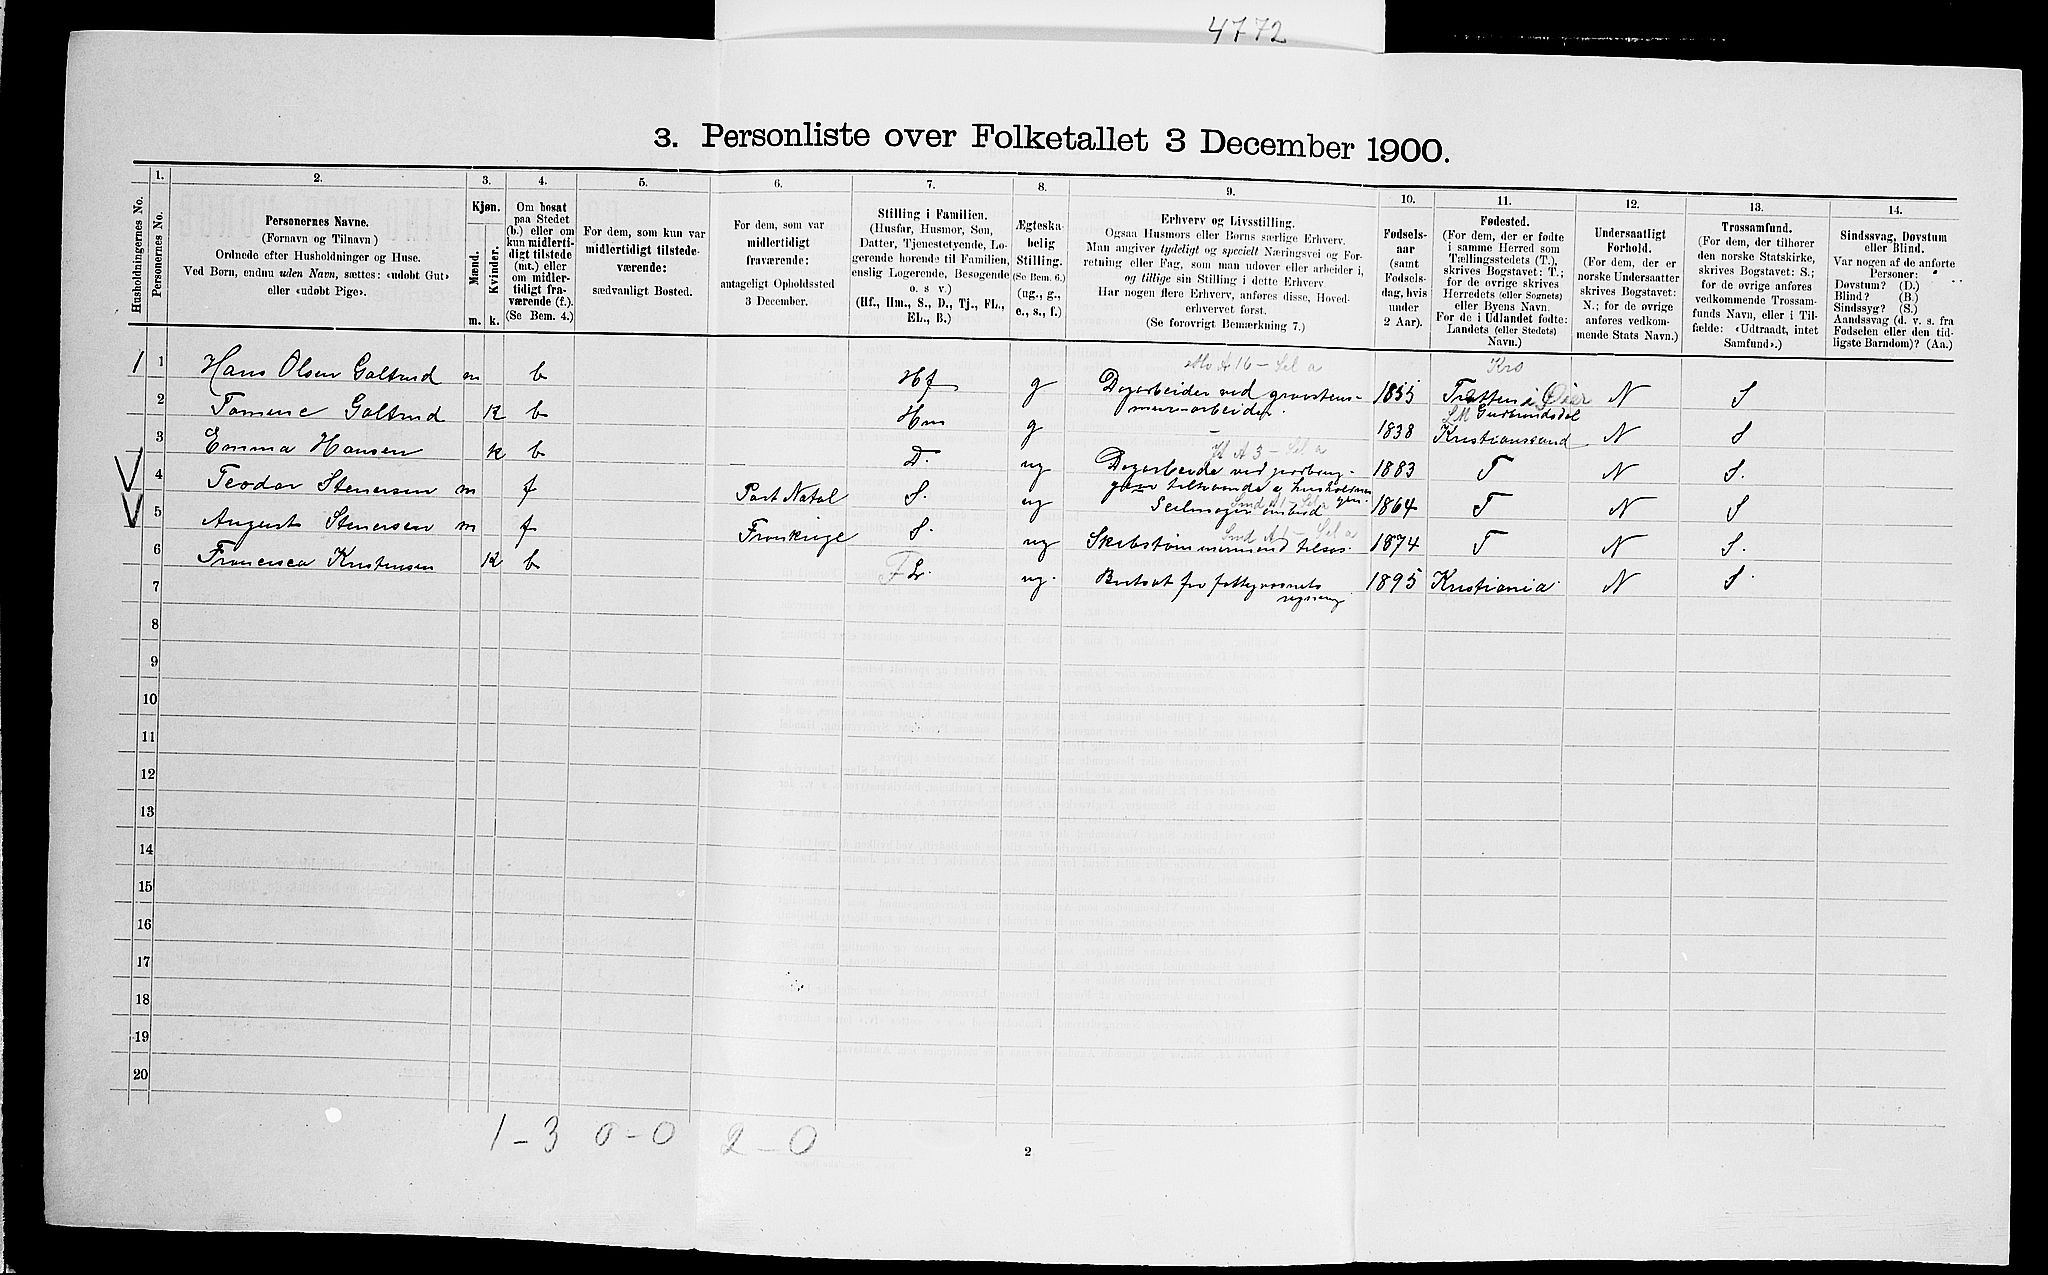 4772
3. Personliste over Folketallet 3 December 1900.
Husholdningernes No.
1. Personernes No.
2. Personernes Navne.
(Fornavn og Tilnavn)
Ordnede efter Husholdninger og Huse.
Ved Børn, endnu uden Navn, sættes: «udøbt Gut»
eller «udøbt Pige».
3. Kjøn.
Mænd. m.
Kvinder. k.
4. Om bosat
paa Stedet
(b.) eller om
kun midlerti-
digt tilstede
(mt.) eller
om midler-
tidigt fra-
værende (f.).
(Se Bem. 4.)
5. For dem, som kun var
midlertidigt tilstede-
værende:
sædvanligt Bosted.
6. For dem, som var
midlertidigt
fraværende:
antageligt Opholdssted
3 December.
7. Stilling i Familien.
(Husfar, Husmor, Søn,
Datter, Tjenestetyende, Lo-
gerende hørende til Familien,
enslig Logerende, Besøgende
o. s. v.)
(Hf., Hm., S., D., Tj., FL.,
EL., B.)
8. Ægteska-
belig
Stilling.
(Se Bem. 6.)
(ug., g.,
e., s., f.)
9. Erhverv og Livsstilling.
Ogsaa Husmors eller Børns særlige Erhverv.
Man angiver tydeligt og specielt Næringsvei og For-
retning eller Fag, som man udøver eller arbeider i,
og tillige sin Stilling i dette Erhverv.
Har nogen flere Erhverv, anføres disse, Hoved-
erhvervet først.
(Se forøvrigt Bemærkning 7.)
10. Fødsels-
aar
(samt
Fødsels-
dag, hvis
under
2 Aar).
11. Fødested.
(For dem, der er fødte
i samme Herred som
Tællingsstedets (T.),
skrives Bogstavet: T.;
for de øvrige skrives
Herredets (eller Sognets)
eller Byens Navn.
For de i Udlandet fødte:
Landets (eller Stedets)
Navn.)
12. Undersaatligt
Forhold.
(For dem, der er
norske Undersaatter
skrives Bogstavet:
N.; for de øvrige
anføres vedkom-
mende Stats Navn.)
13. Trossamfund.
(For dem, der tilhører
den norske Statskirke,
skrives Bogstavet: S.;
for de øvrige anføres
vedkommende Trossam-
funds Navn, eller i Til-
fælde: «Udtraadt, intet
Samfund».)
14. Sindssvag, Døvstum
eller Blind.
Var nogen af de anførte
Personer:
Døvstum? (D.)
Blind? (B.)
Sindssyg? (S.)
Aandssvag (d. v. s. fra
Fødselen eller den tid-
ligste Barndom)? (Aa.)
A 16 - Sel a Kro
1 1 Hans Olsen Galtrud m b Hf g Dagarbeider ved gravstens- 1855 Tretten i Øier N S
murerarbeider. Gudbrandsdal
2 Tomine Galtrud K b Hm g 1838 Kristianssand N S
A 3 - Sel a
3 Emma Hansen k b D. ug Dagarbeide ved 1883 T N S.
tilsvarende
4 Teodor Stenersen m f Port Natal S. ug Seilmager ombord 1864 T N S
Smd A1 - Sel a
5 August Stenersen m f Frankrige S. ug Skibstømmermand tilsøs. 1874 T N S.
6 Francisca Kristensen K b FL. ug. Bortsat for fattigvæsnets 1895 Kristiania N S.
regning
7
8
9
10
11
12
13
14
15
16
17
18
19
20
1 - 3 0 - 0 2 - 0
2